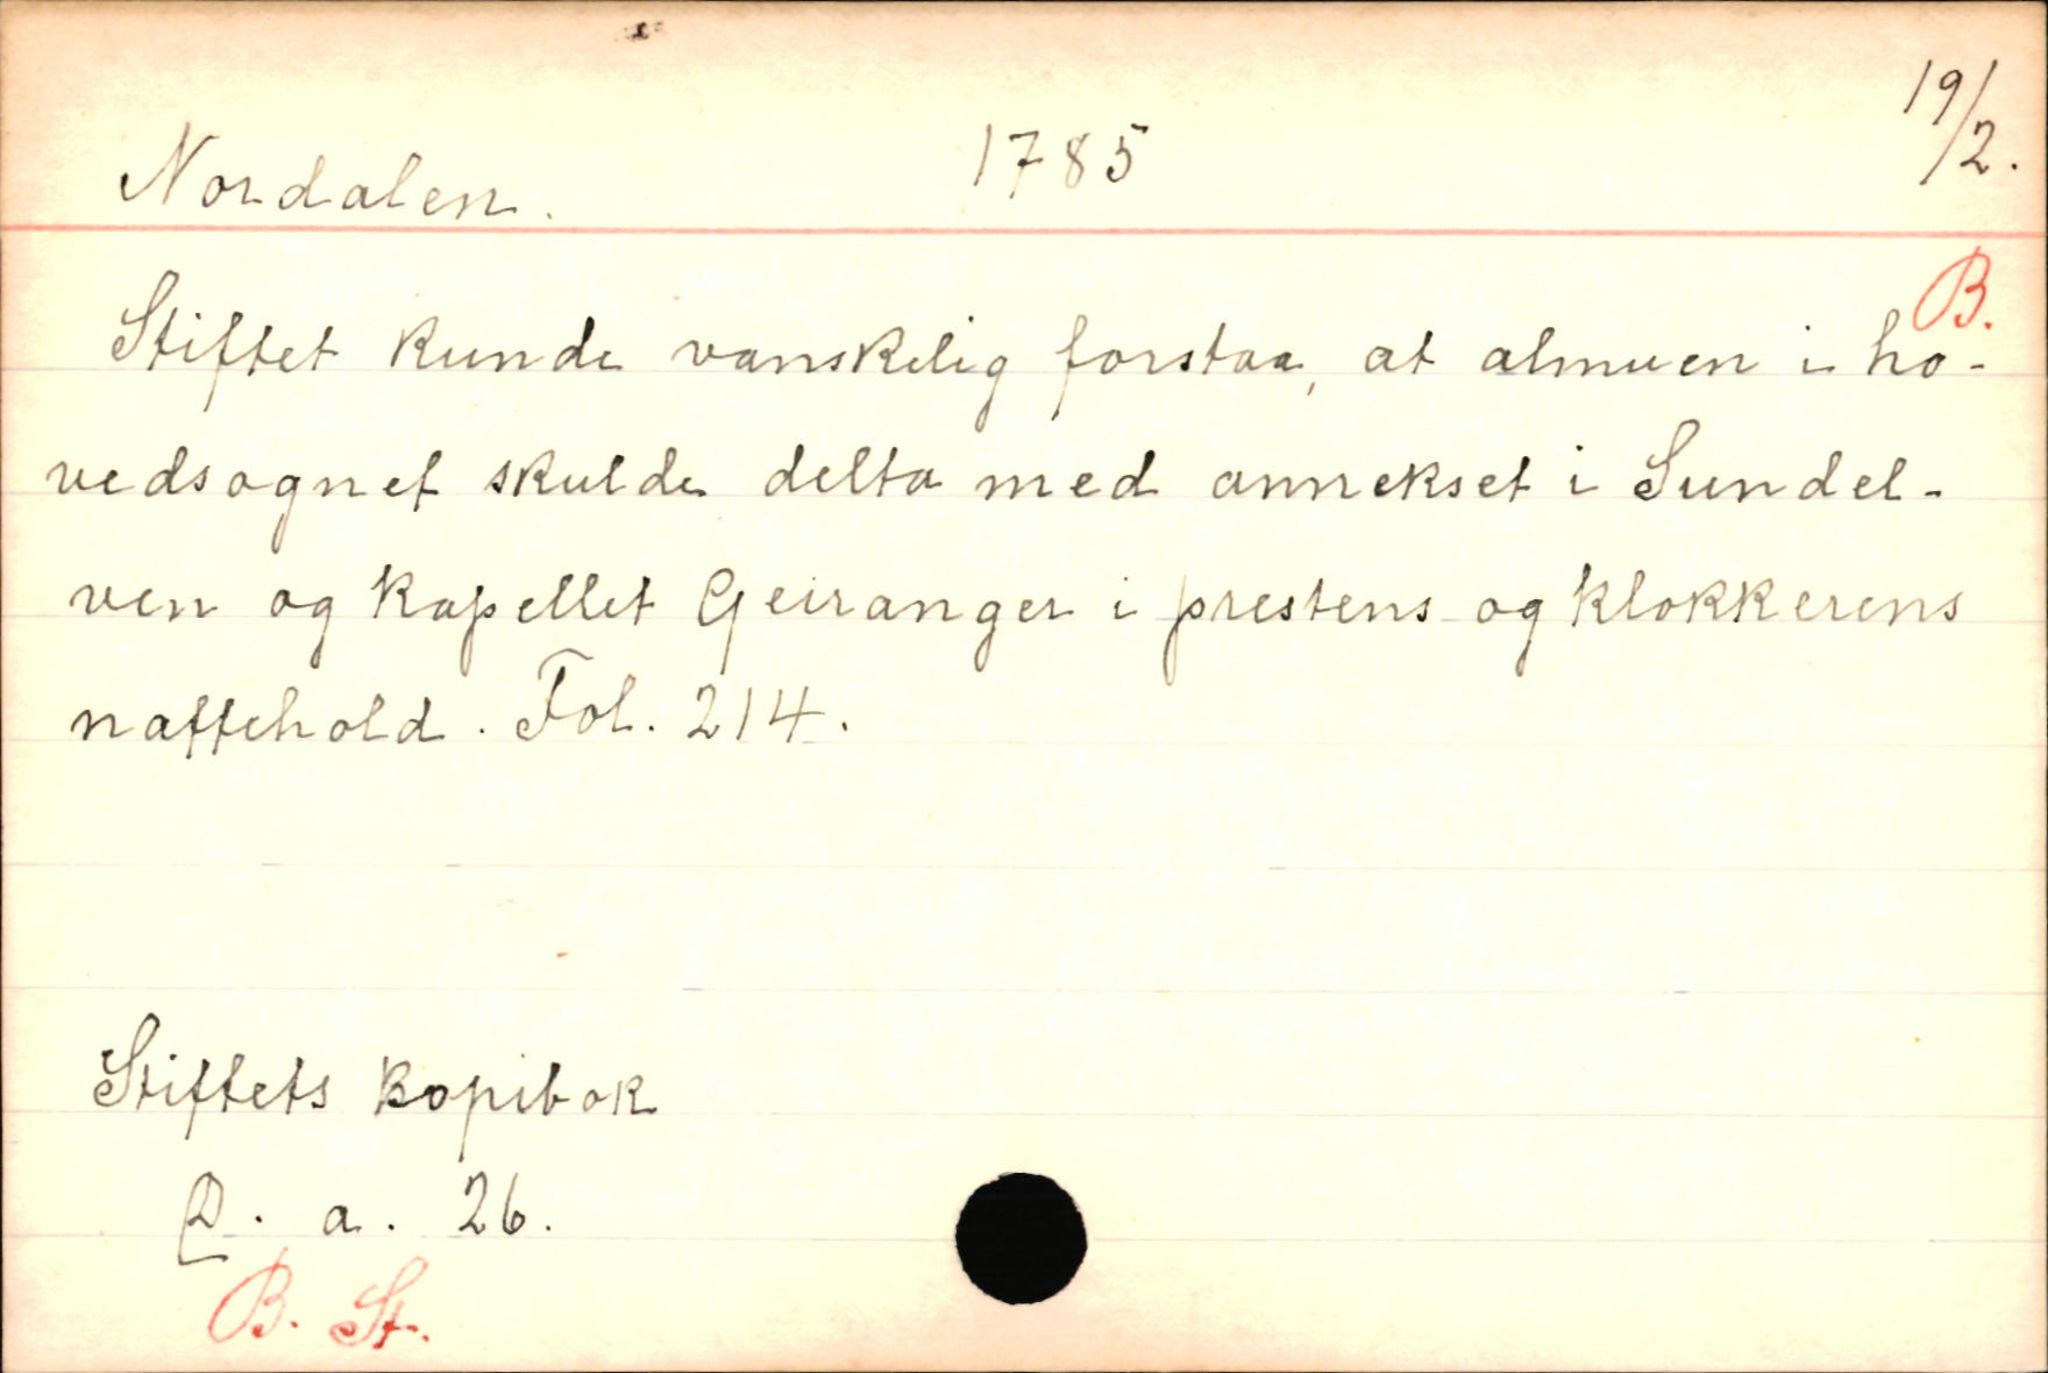 Nordalen. 1785 19/2.
B.
Stiftet kunde vanskelig forstaa, at almuen i ho-
vedsognet skulde delta med annekset i Sundel-
ven og kapellet Geiranger i prestens og klokkerens
nattehold. Fol. 214.
Stiftets kopibok
a. 26.
B. St.